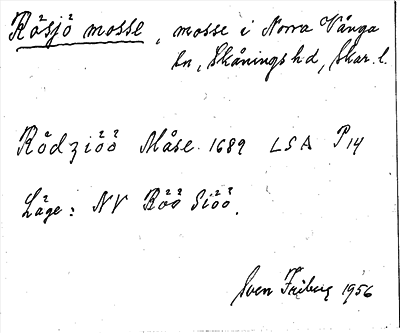 Rösjö mosse, mosse i Norra Vånga
sn, Skånings hd, Skar. l.
Rödziöö Måse 1689 LSA P14
Läge: NV Röö Siöö.
Sven Friberg 1956